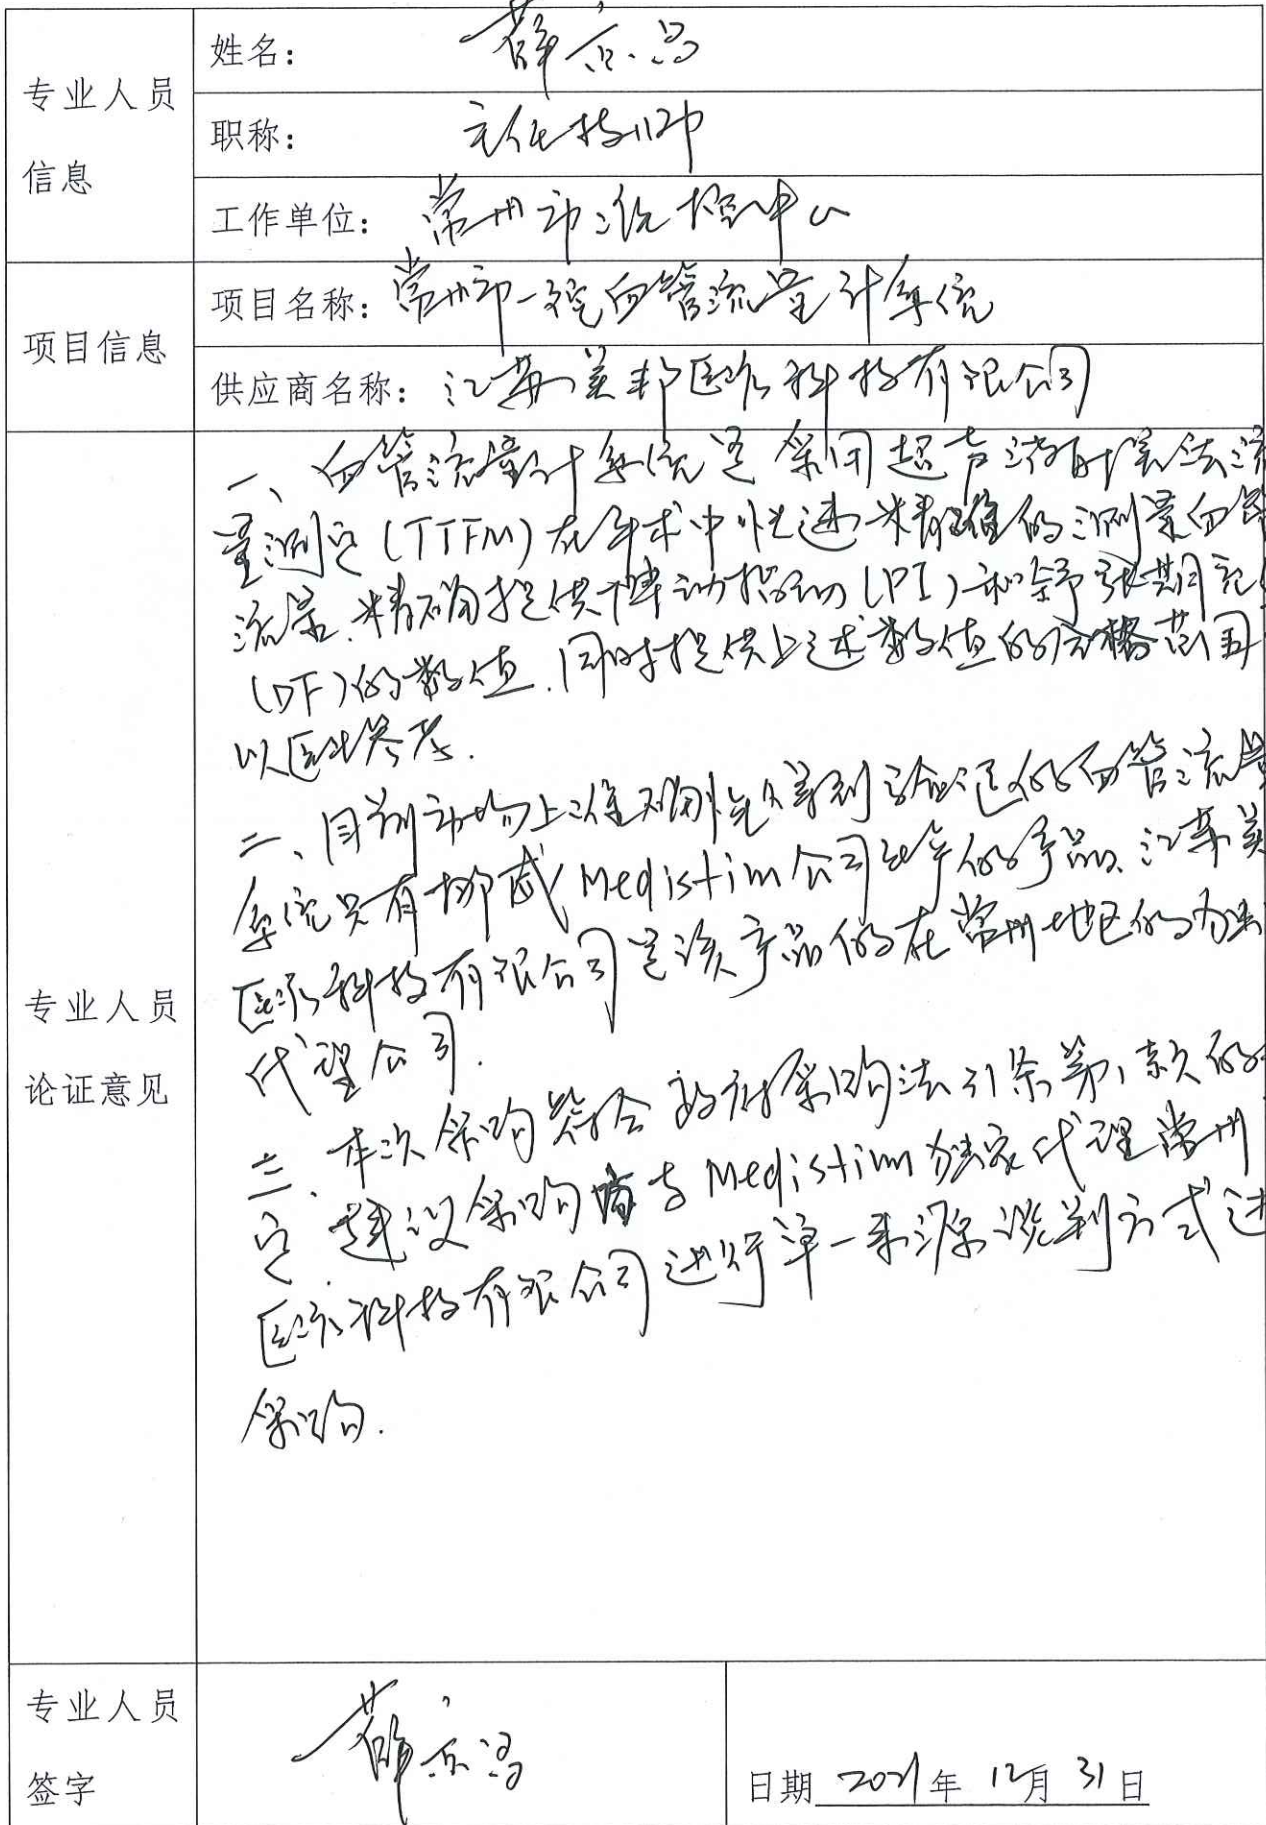 专业人员
信息
姓名：薛
职称：主任技师
工作单位：常州市 中心
项目信息
项目名称：常州市一院血管流量计系统
供应商名称：江苏美邦医疗科技有限公司
专业人员
论证意见
一、血管流量计系统是采用超声 时 法流
量测定(TTFM)在手术中快速精确的测量血管
流量.精确提供搏动指数(PI)和舒张期
(DF)的数值.同时提供上述数值的合格范围
以医生参考.
二、目前市场上准确 得到验证的血管流量
系统只有挪威Medistim公司生产的产品、江苏美
医疗科技有限公司是该产品的在常州地区的独家
代理公司.
三、本次采购符合政府采购法31条第1款的
定.建议采购 与Medistim独家代理常州
医疗科技有限公司进行单一来源谈判方式进
采购.
专业人员
签字
薛
日期 2021年 12月 31日